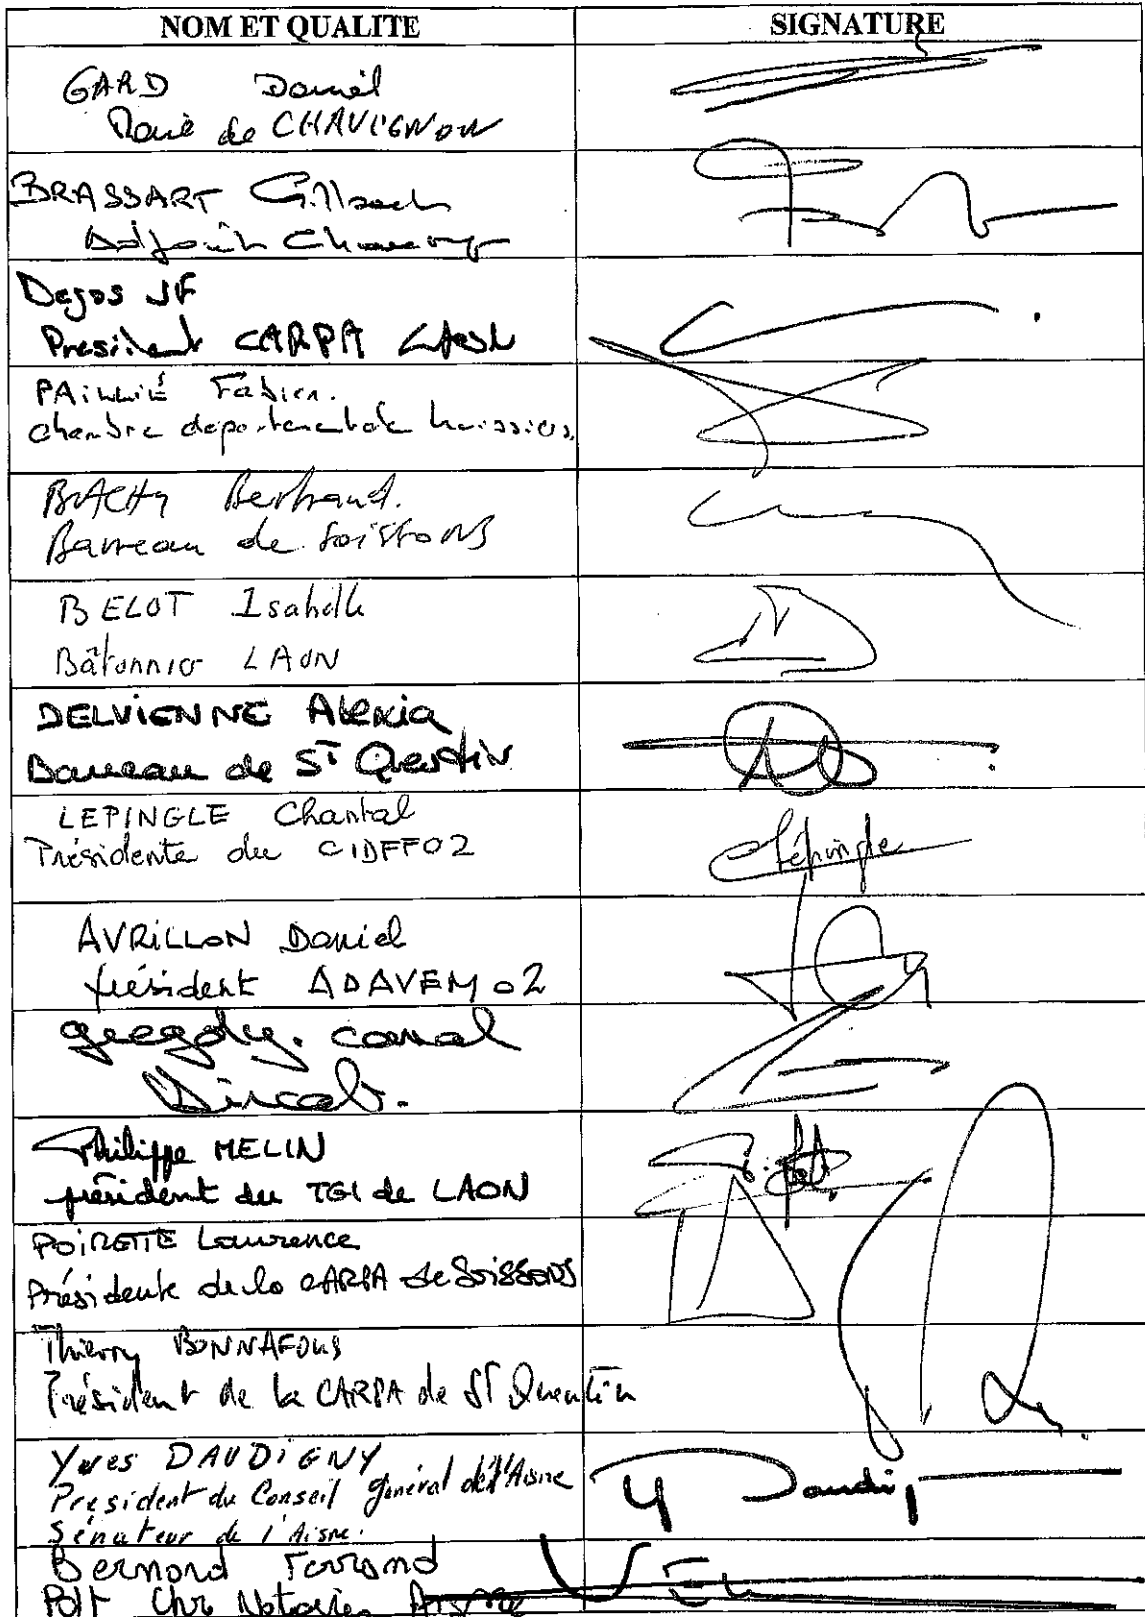 NOM ET QUALITE
SIGNATURE
GARD Daniel
Maire de CHAVIGNON
BRASSART
Adjoint
Degos JF
President CARPA
PAILLIÉ Fabien.
chambre departementale huissiers.
BACHY Bertrand.
Barreau de SoissoNS
BELOT Isabelle
Bâtonnier LAON
DELVIENNE Alexia
Barreau de ST Quentin
LEPINGLE Chantal
Présidente du CIDFF02
Lépingle
AVRILLON Daniel
président ADAVEM 02
Dircab.
Philippe MELIN
président du TGI de LAON
POIRETTE Laurence
Présidente de la CARPA de SoissONS
Thierry BONNAFOUS
Président de la CARPA de ST Quentin
Yves DAUDIGNY
President du Conseil général de l'Aisne
Sénateur de l'Aisne.
Y Daudigny
Bernard Ferrand
Pdt Chbre Notaires Aisne